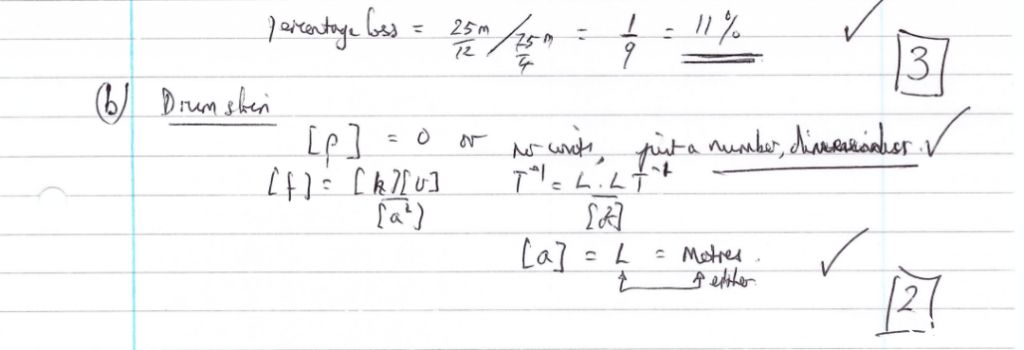 percentage loss = 25m/12 / 75m/4 = 1/9 = 11% ✓
3
(b) Drum skin
[ρ] = 0 or no units, just a number, dimensionless. ✓
[f] = [k][v]/[a²] T⁻¹ = L.L T⁻¹/[a²]
[a] = L = Metres. ✓
↑ ↑ either
2